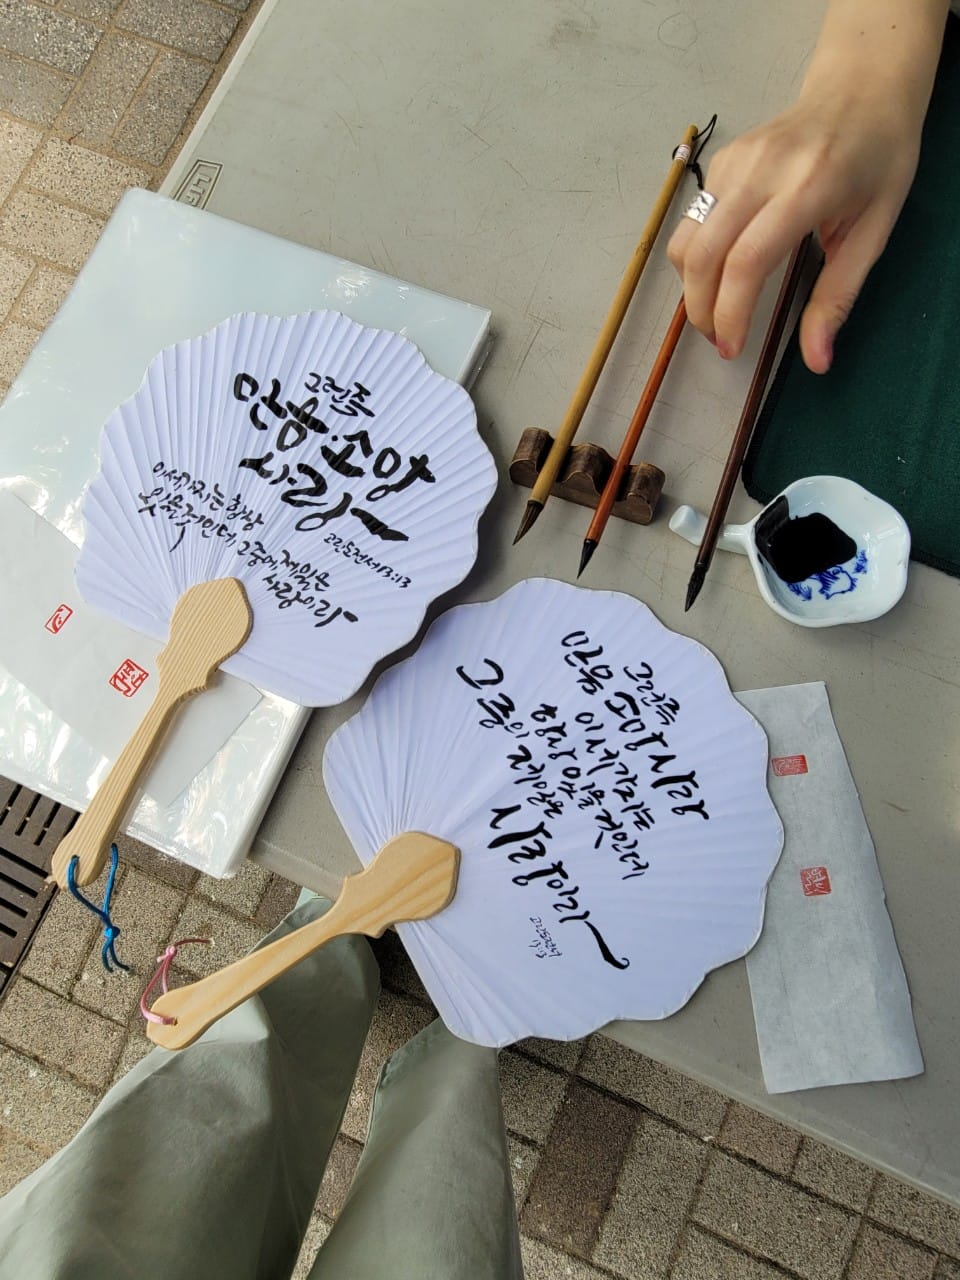 그런즉
믿음.소망
사랑
이 세가지는 항상
있을 것인데 그중에 제일은
사랑이라
고린도전서 13:13
그런즉
믿음 소망 사랑
이 세가지는
항상 있을 것인데
그 중의 제일은
사랑이라
13:13